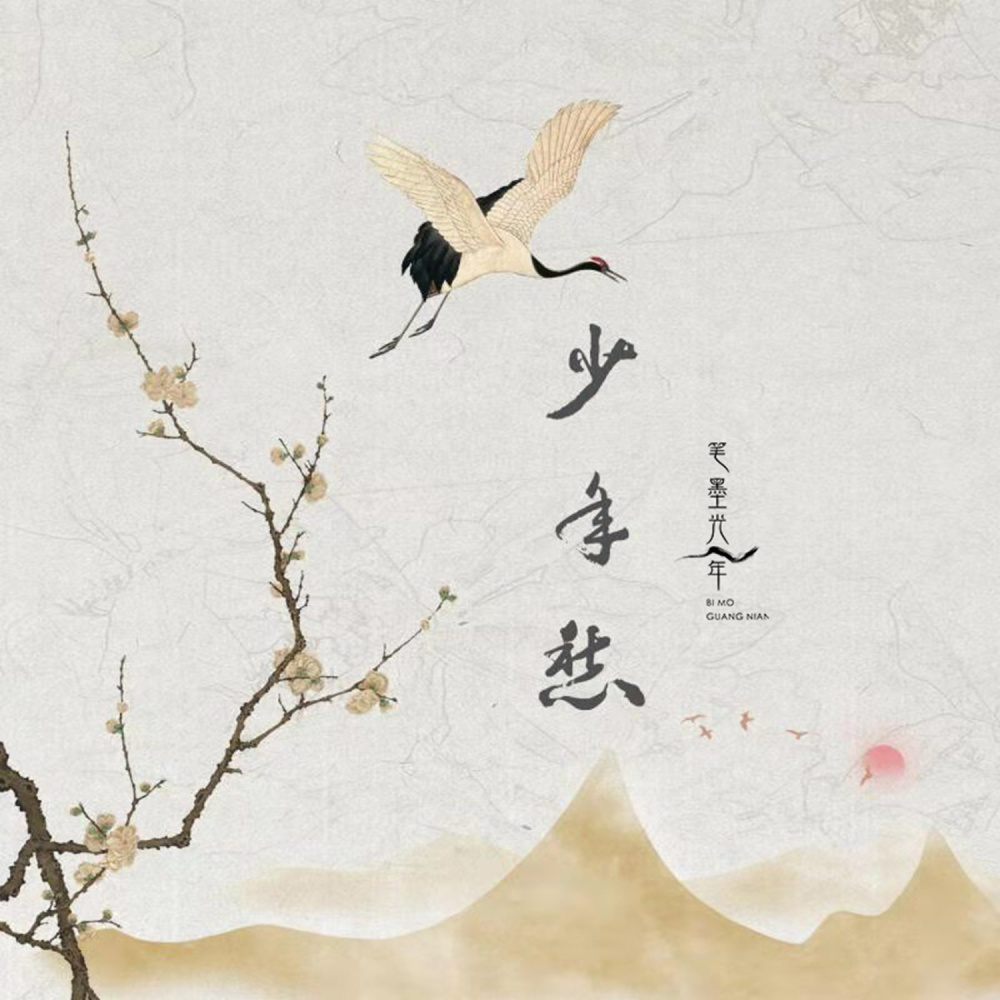 少年愁
笔墨光年
BI MO
GUANG NIAN